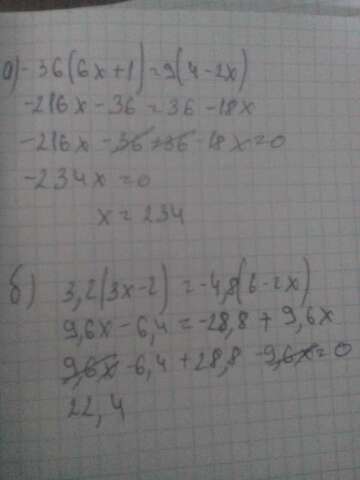 а) -36(6x+1)=9(4-2x)
-216x-36=36-18x
-216x-36+36-18x=0
-234x=0
x=234
б) 3,2(3x-2)=-4,8(6-2x)
9,6x-6,4=-28,8+9,6x
9,6x-6,4+28,8-9,6x=0
22,4